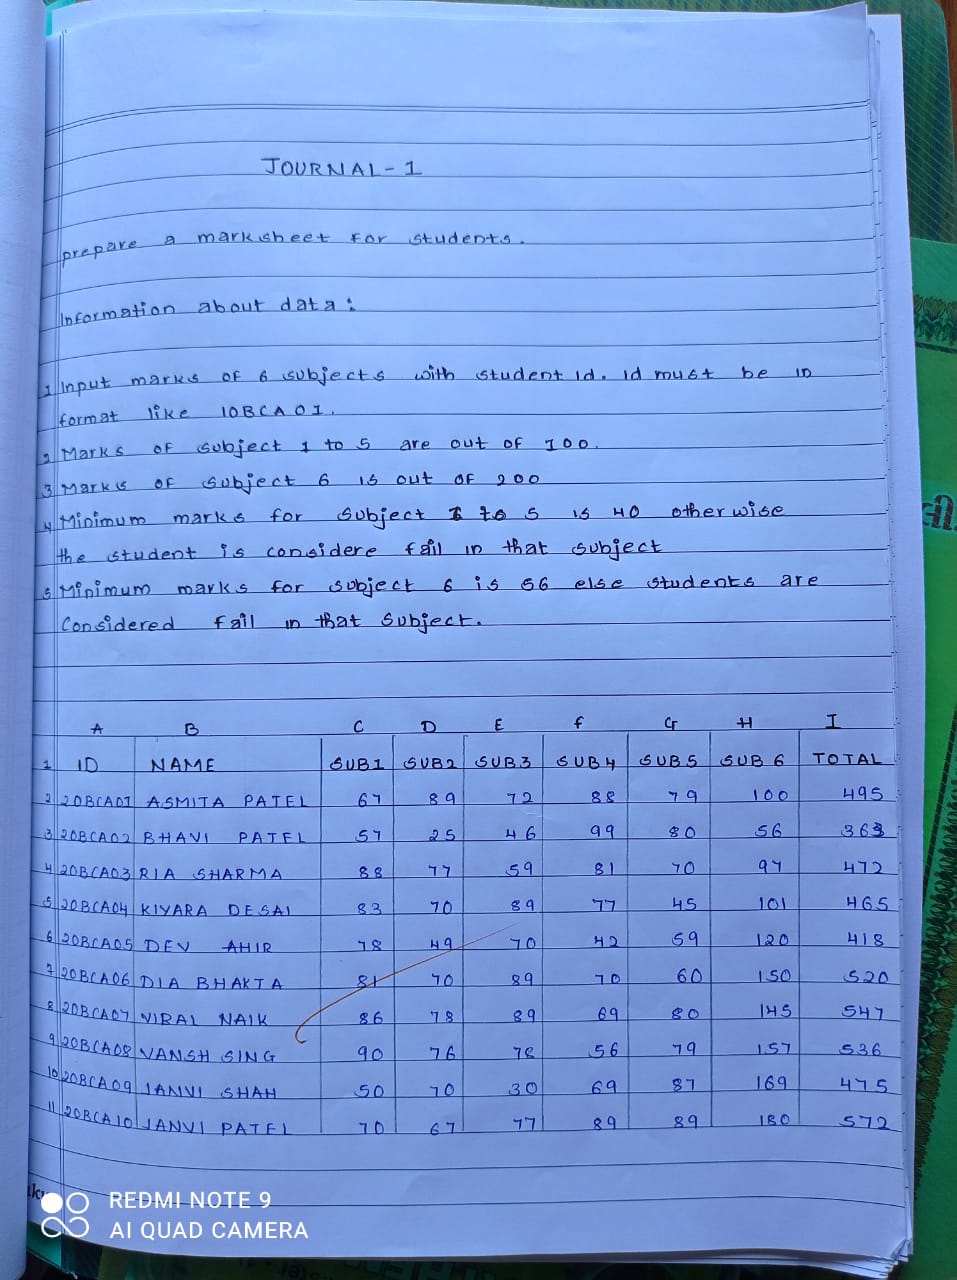 JOURNAL-1
prepare a marksheet for students.
Information about data:
1 Input marks of 6 subjects with student id. id must be in
format like 10BCA01.
2 Marks of subject 1 to 5 are out of 100.
3 Marks of subject 6 is out of 200
4 Minimum marks for subject 1 to 5 is 40 otherwise
the student is considere fail in that subject
5 Minimum marks for subject 6 is 56 else students are
Considered fail in that Subject.
A B C D E F G H I
1 ID NAME SUB1 SUB2 SUB3 SUB4 SUB5 SUB 6 TOTAL
2 20BCA01 ASMITA PATEL 67 89 72 88 79 100 495
3 20BCA02 BHAVI PATEL 57 25 46 99 80 56 363
4 20BCA03 RIA SHARMA 88 77 59 81 70 97 472
5 20BCA04 KIYARA DESAI 83 70 89 77 45 101 465
6 20BCA05 DEV AHIR 78 49 70 42 59 120 418
7 20BCA06 DIA BHAKTA 81 70 89 70 60 150 520
8 20BCA07 VIRAL NAIK 86 78 89 69 80 145 547
9 20BCA08 VANSH SING 90 76 78 56 79 157 536
10 20BCA09 JANVI SHAH 50 70 30 69 87 169 475
11 20BCA10 JANVI PATEL 70 67 77 89 89 180 572
REDMI NOTE 9
AI QUAD CAMERA